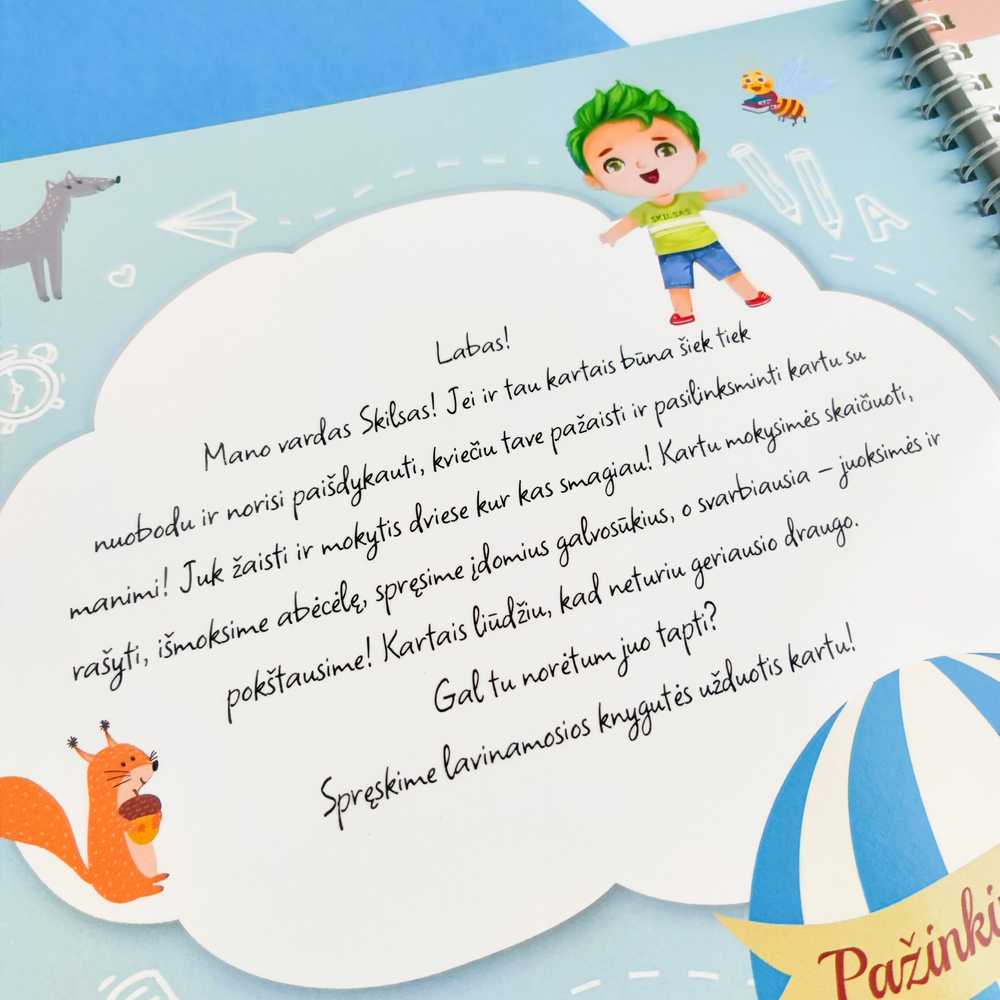 SKILSAS
A
Labas!
Mano vardas Skilsas! Jei ir tau kartais būna šiek tiek
nuobodu ir norisi paišdykauti, kviečiu tave pažaisti ir pasilinksminti kartu su
manimi! Juk žaisti ir mokytis dviese kur kas smagiau! Kartu mokysimės skaičiuoti,
rašyti, išmoksime abėcėlę, spręsime įdomius galvosūkius, o svarbiausia – juoksimės ir
pokštausime! Kartais liūdžiu, kad neturiu geriausio draugo.
Gal tu norėtum juo tapti?
Spręskime lavinamosios knygutės užduotis kartu!
Pažinki